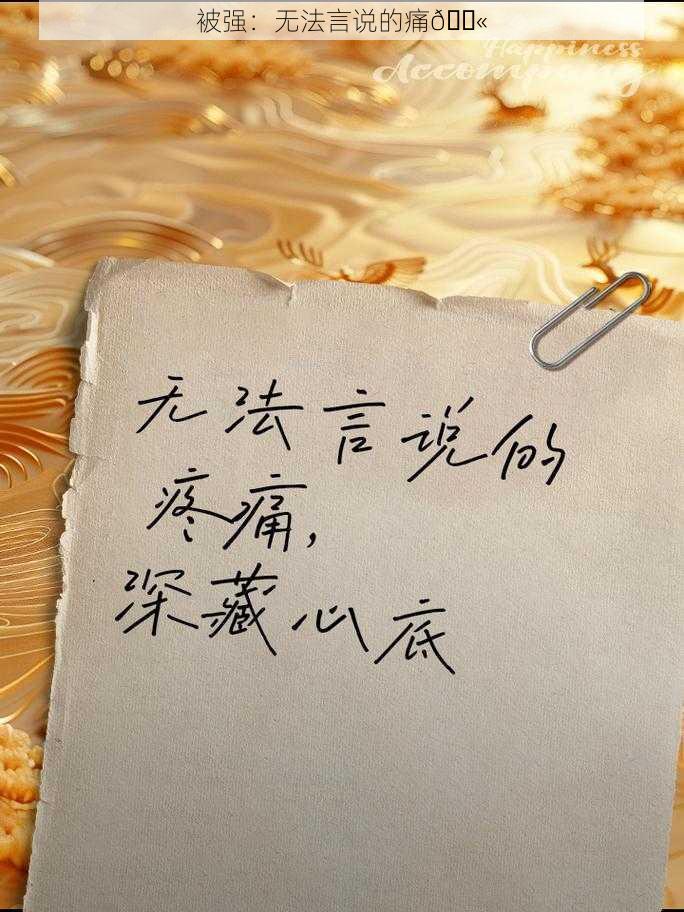 被强：无法言说的痛ð«
Happiness
Accompany
无法言说的
疼痛，
深藏心底